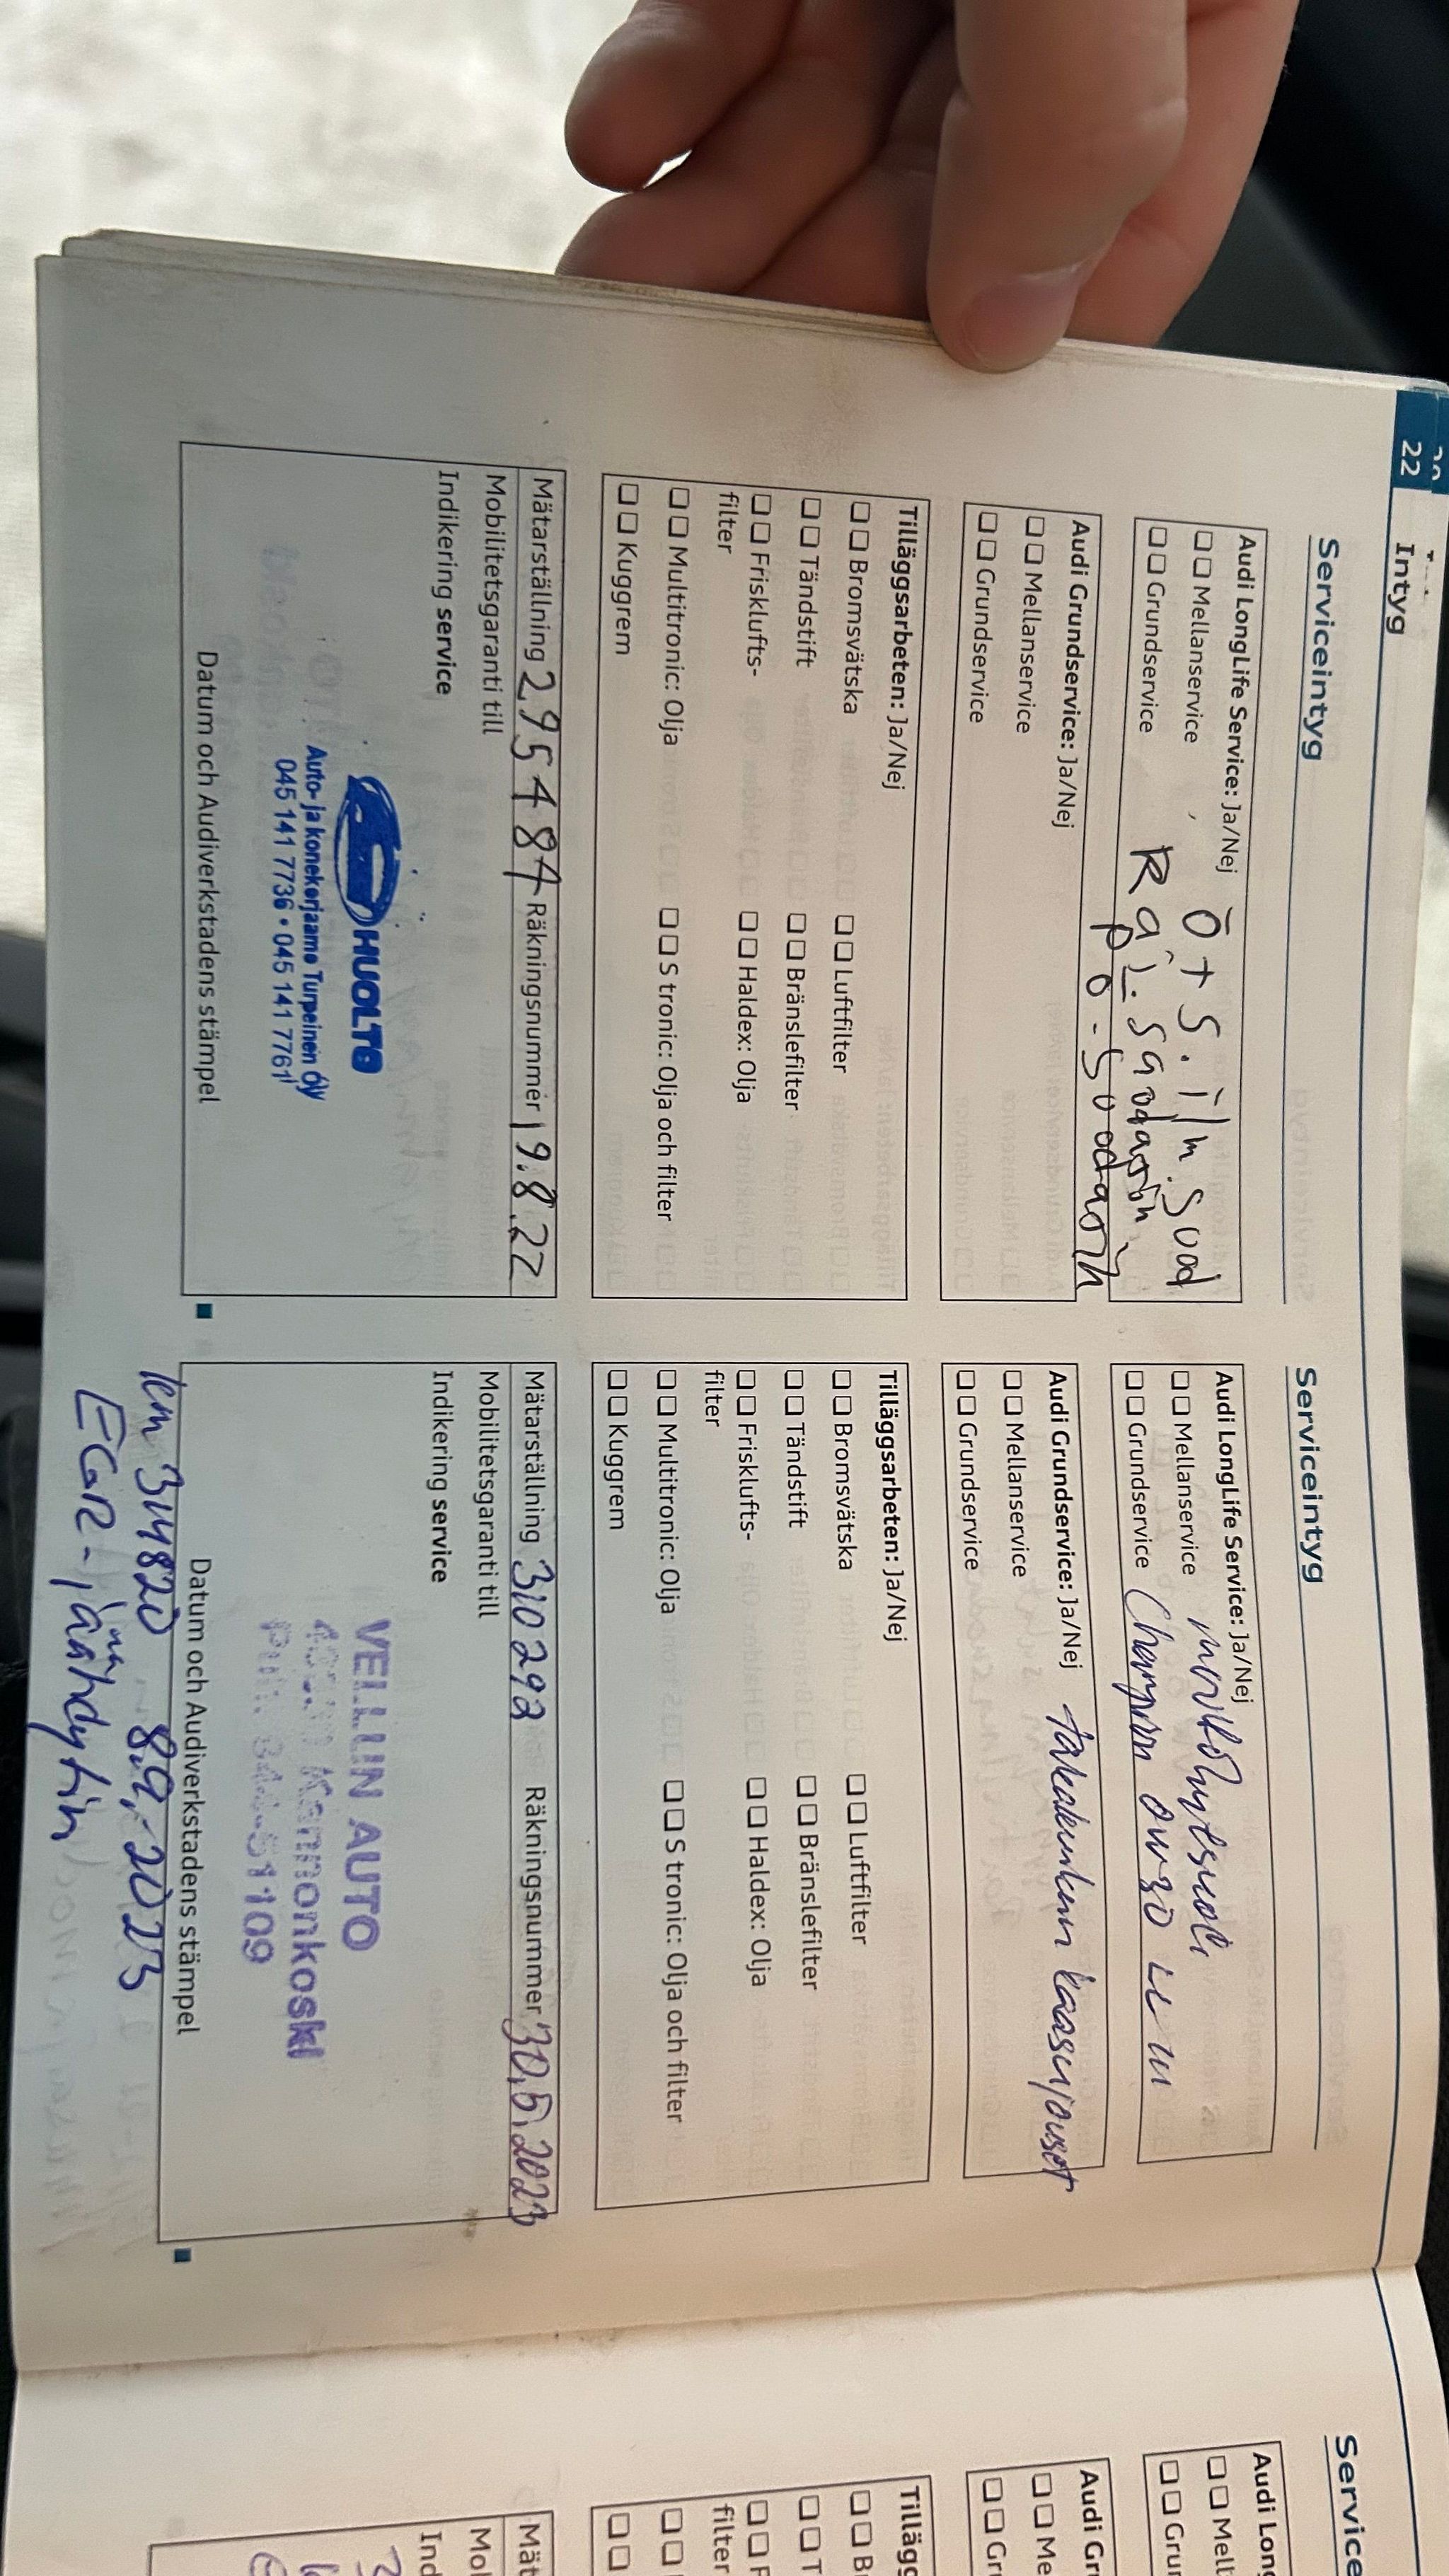 22 Intyg
Serviceintyg
Audi LongLife Service: Ja/Nej
Mellanservice
Grundservice
Ö+S.ilm.suod
Rai.Suodatin
po-suodatin
Audi Grundservice: Ja/Nej
Mellanservice
Grundservice
Tilläggsarbeten: Ja/Nej
Bromsvätska Luftfilter
Tändstift Bränslefilter
Frisklufts- Haldex: Olja
filter
Multitronic: Olja S tronic: Olja och filter
Kuggrem
Mätarställning 295484 Räkningsnummer 19.8.22
Mobilitetsgaranti till
Indikering service
HUOLTO
Auto- ja konekorjaamo Turpeinen Oy
045 141 7736 • 045 141 7761
Datum och Audiverkstadens stämpel
Serviceintyg
Audi LongLife Service: Ja/Nej
Mellanservice
Grundservice Champion 5W30
Audi Grundservice: Ja/Nej takaluukun kaasujouset
Mellanservice
Grundservice
Tilläggsarbeten: Ja/Nej
Bromsvätska Luftfilter
Tändstift Bränslefilter
Frisklufts- Haldex: Olja
filter
Multitronic: Olja S tronic: Olja och filter
Kuggrem
Mätarställning 310293 Räkningsnummer 30,5,2023
Mobilitetsgaranti till
Indikering service
VELLUN AUTO
Kannonkoski
Datum och Audiverkstadens stämpel
km 314820 8.9,-2023
EGR-jäähdytin
Service
Audi Long
Mell
Grun
Audi Gr
Me
Gr
Tillägg
B
T
F
filter
Mät
Mol
Ind